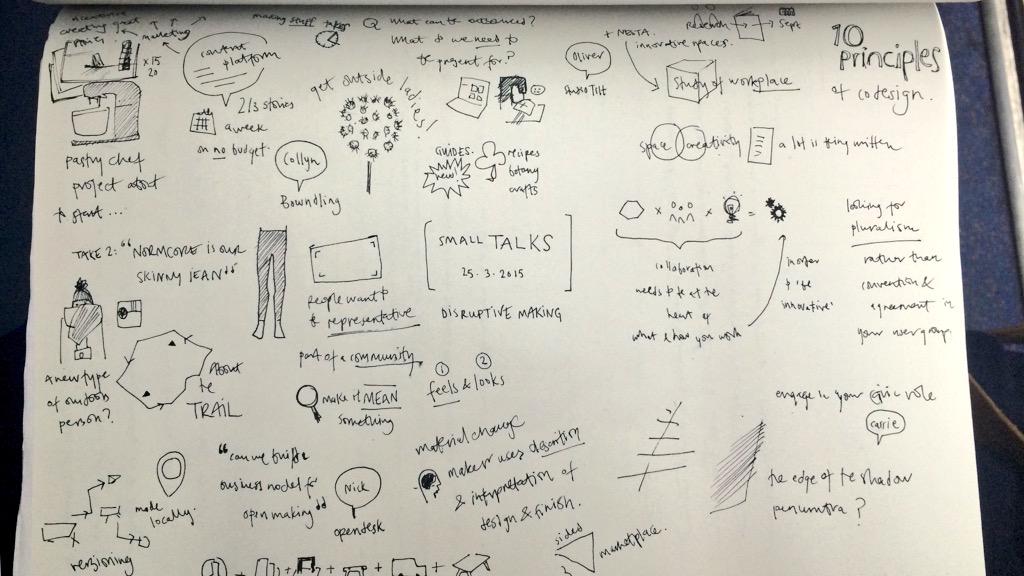 creating great
marketing
x 15
20
content
platform
making stuff takes
2/3 stories
a week
on no budget.
pastry chef
project about
to start...
get outside
ladies!
Collyn
Bowndling
Q what can be outsourced?
what do we need to
be present for?
GUIDES.
new!
recipes
botany
crafts
Oliver
+ NESTA.
innovative spaces.
Research
Sept
Study of workplace
10
principles
of codesign.
space
creativity
a lot is being written
x
x
=
collaboration
needs to be at the
heart of
what & how you work
in order
to be
innovative'
looking for
pluralism
rather than
convention &
agreement in
your user group.
TAKE 2: "NORMCORE IS OUR
SKINNY JEAN"
SMALL TALKS
25.3.2015
DISRUPTIVE MAKING
people want to
be representative
part of a community
make it MEAN
something
1
2
feels & looks
A new type
of outdoor
person?
About
the
TRAIL
engage in your civic role
Carrie
the edge of the shadow
penumbra?
material change
maker uses discretion
& interpretation of
design & finish.
"can we find a
business model for
open making"
Nick
opendesk
made
locally.
versioning
+
+
+
+
+
sided
marketplace.
3